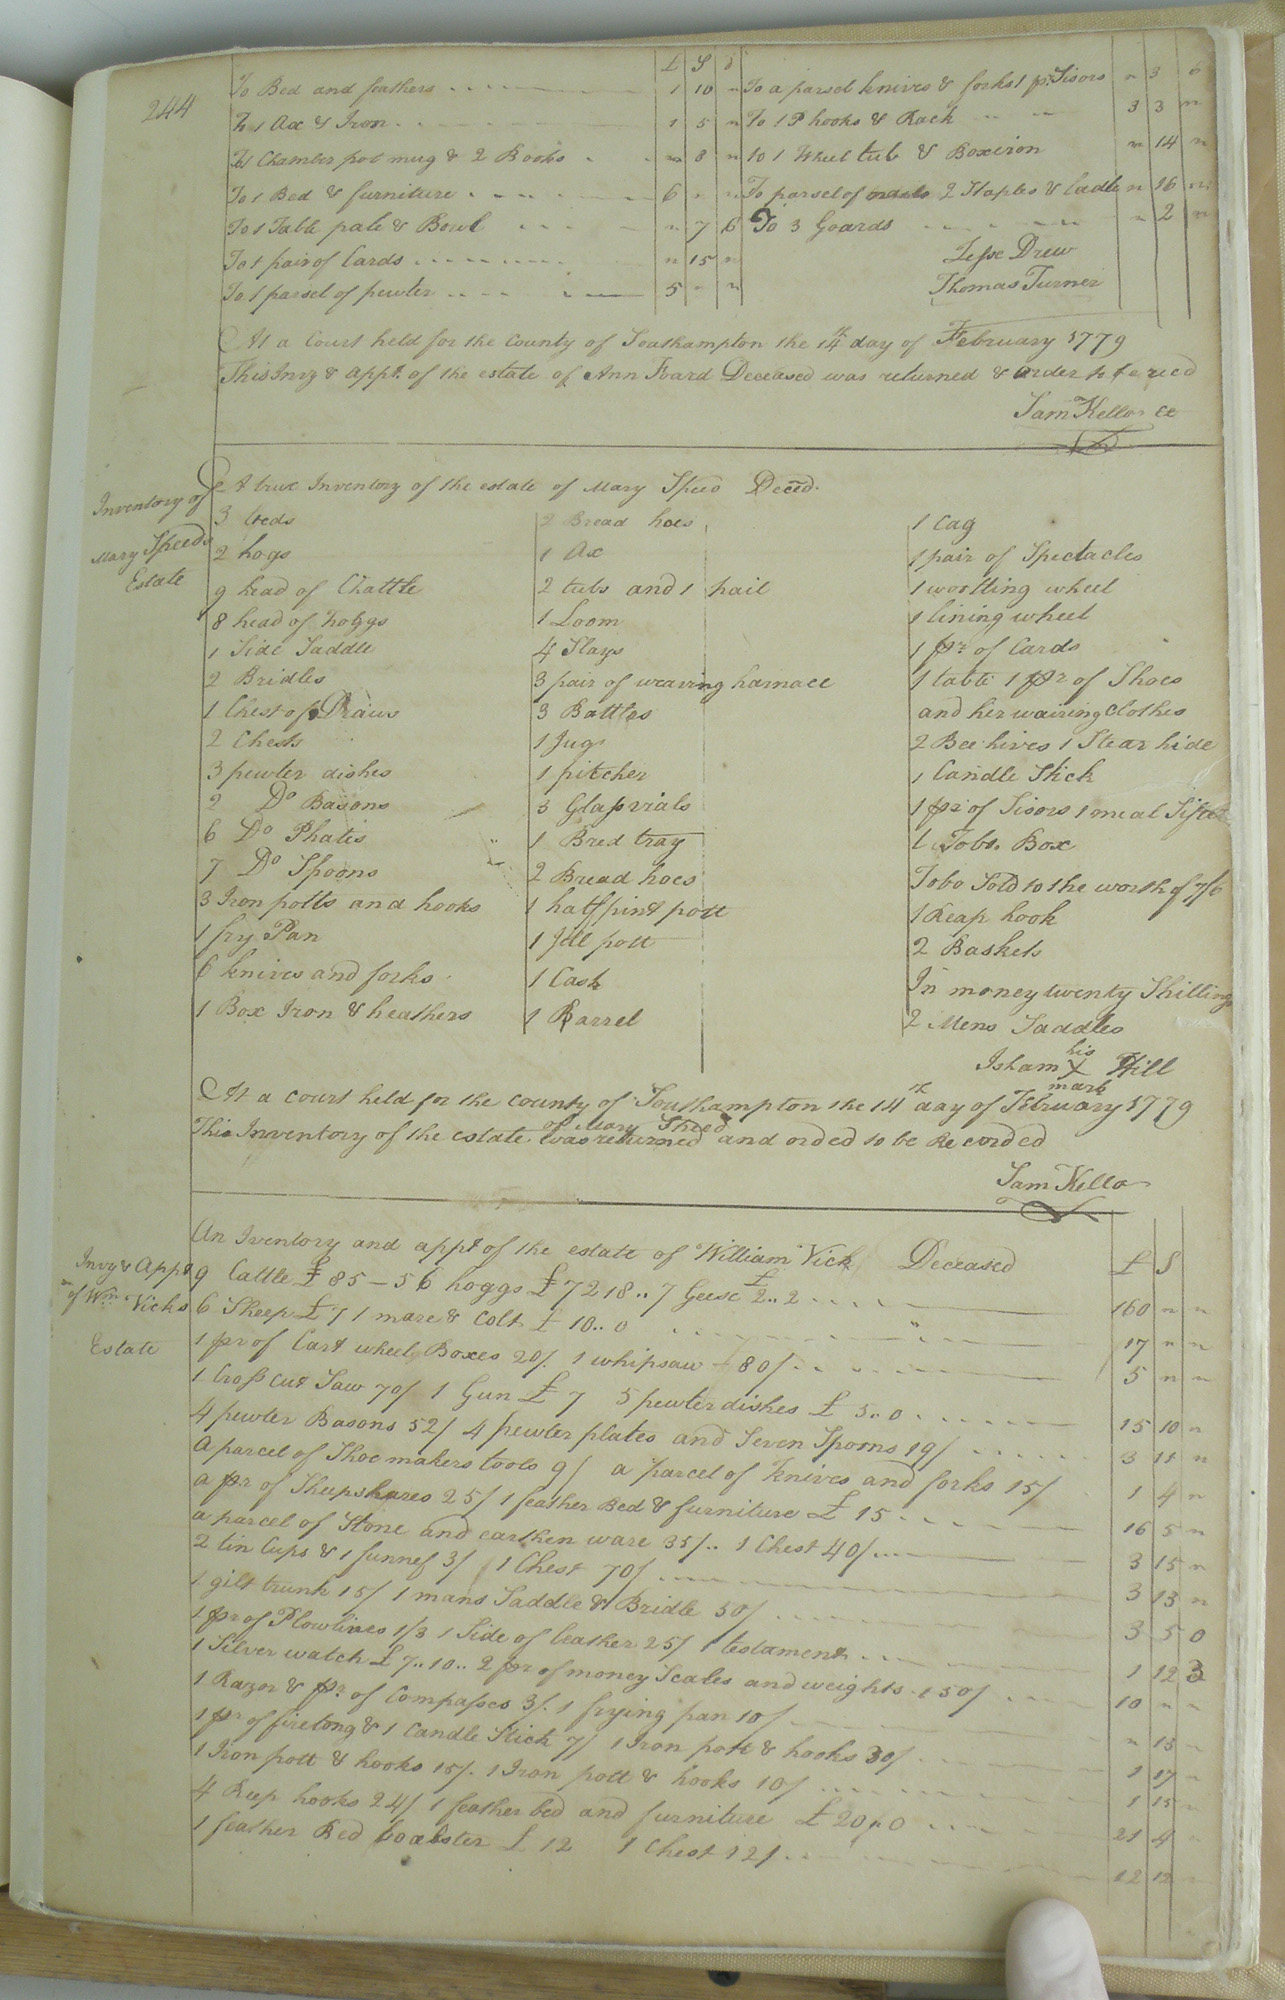 244
£ S d
To Bed and feathers 1 10 "
To 1 Ax & Iron 1 5 "
To 1 Chamber pot mug & 2 Books " 8 "
To 1 Bed & furniture 6 " "
To 1 Table pale & Bowl " 7 6
To 1 pair of Cards " 15 "
To 1 parsel of pewter 5 " "
To a parsel knives & forks 1 pr. Sisors " 3 6
To 1 P hooks & Rack 3 3 "
to 1 Wheel tub & Boxiron " 14 "
To parsel of 2 Staples & Ladle " 16 "
To 3 Goards " 2 "
Jesse Drew
Thomas Turner
At a Court held for the County of Southampton the 14th day of February 1779
This Invy & appt. of the estate of Ann Deceased was returned & order to be recd
Sam Kello Cc
Inventory of
Mary Speeds
Estate
A true Inventory of the estate of Mary Speed Deced.
3 beds
2 hogs
9 head of Chattle
8 head of hoggs
1 Side Saddle
2 Bridles
1 Chest of Draws
2 Chests
3 pewter dishes
2 Do Basons
6 Do Phates
7 Do Spoons
3 Iron potts and hooks
1 fry Pan
6 knives and forks
1 Box Iron & heathers
2 Bread hoes
1 Ax
2 tubs and 1 pail
1 Loom
4 Slays
3 pair of weaving harnace
3 Bottles
1 Jug
1 pitcher
3 Glass vials
1 Bred tray
2 Bread hoes
1 half pint pott
1 Jill pott
1 Cask
1 Barrel
1 Cag
1 pair of Spectacles
1 woolling wheel
1 lining wheel
1 pr. of Cards
1 table 1 pr of Shoes
and her wairing Clothes
2 Bee hives 1 Stear hide
1 Candle Stick
1 pr of Sisors 1 meal Sifter
1 Tobo. Box
Tobo Sold to the worth of 7/6
1 Reap hook
2 Baskets
In money twenty Shillings
2 Mens Saddles
his
Isham X Hill
mark
At a court held for the county of Southampton the 14th day of February 1779
of Mary Speed
This Inventory of the estate was returned and orded to be Recorded
Sam Kello
Invy & Appt
of Wm Vicks
Estate
An Iventory and appt of the estate of William Vick Deceased £ S
9 Cattle £ 85 - 56 hoggs £ 72 18 .. 7 Geese £ 2..2 160 " "
6 Sheep £ 7 1 mare & Colt £ 10..0 17 " "
1 pr of Cart wheel Boxes 20/. 1 whipsaw 80/ 5 " "
1 Cross cut Saw 70/ 1 Gun £ 7 5 pewter dishes £ 5..0 15 10 "
4 pewter Basons 52/ 4 pewter plates and Seven Spoons 19/ 3 11 "
A parcel of Shoemakers tools 9/ a parcel of knives and forks 15/ 1 4 "
a pr of Sheepshares 25/ 1 feather Bed & furniture £ 15 16 5 "
a parcel of Stone and earthen ware 35/.. 1 Chest 40/ 3 15 "
2 tin Cups & 1 funnel 3/ 1 Chest 70/ 3 13 "
1 gilt trunk 15/ 1 mans Saddle & Bridle 50/ 3 5 0
1 pr of Plowlines 1/3 1 Side of leather 25/ 1 testament 1 12 3
1 Silver watch £ 7..10.. 2 pr of money Scales and weights 50/ 10 " "
1 Razor & pr. of Compasses 3/. 1 frying pan 10/ " 13 "
1 pr of firetong & 1 Candle Stick 7/ 1 Iron pott & hooks 30/ 1 17 "
1 Iron pott & hooks 15/. 1 Iron pott & hooks 10/ 1 15 "
4 Reep hooks 24/. 1 feather bed and furniture £ 20..0 21 4 "
1 feather Bed boalster £ 12 1 Chest 12/ 12 12 "